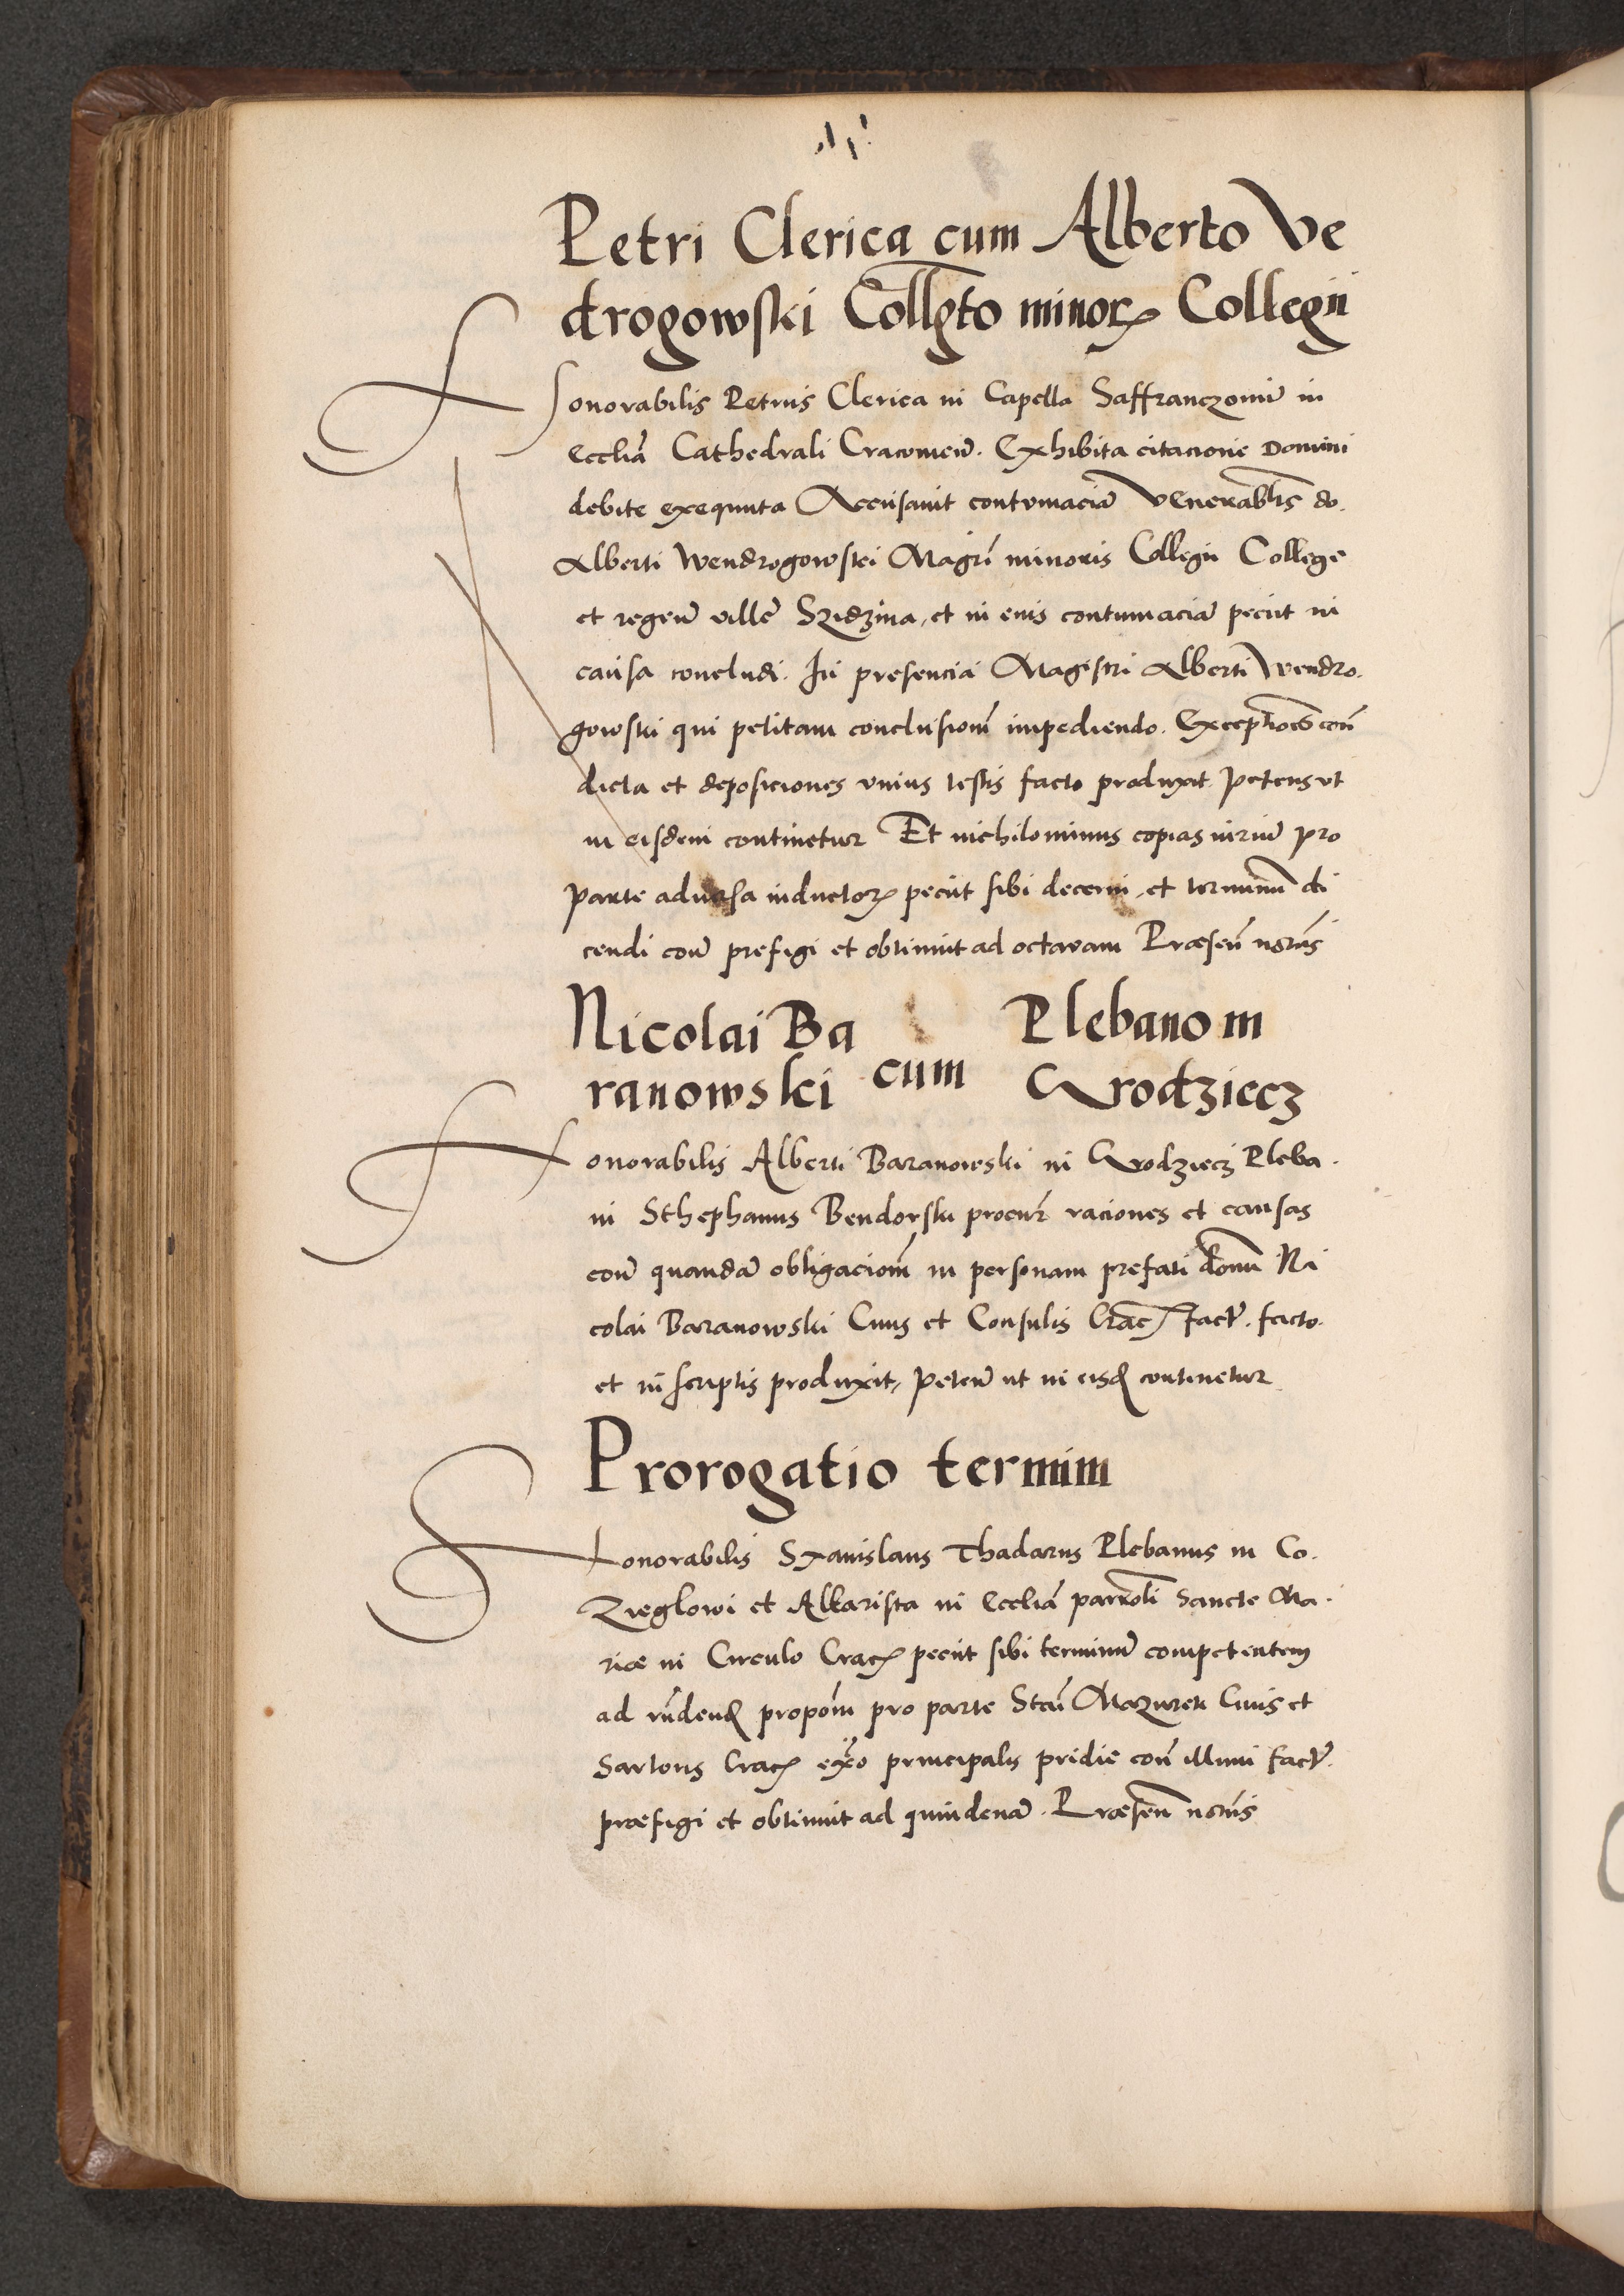 Petri Clerica cum Alberto Ve
drogowski Collgto minorꝝ Collegii
Honorabilis Petrus Clerica in Capella Saffranczonū in
Eccliā Cathedrali Cracouień. Exhibita citacione Domini
debite exequuta Accusauit contumaciā Venerablis do.
Alberti Wendrogowski Magrī minoris Collegii College
et regeñ ville Szidzina, et in eius contumaciā peciit in
causa concludi. In presencia Magistri Alberti Wendro.
gowski qui petitam conclusionē impediendo. Exceptioēs con̄
dicta et deposiciones vnius testis facto produxit. Petens vt
in eisdem continetur Et nichilominus copias iuriū pro
parte aduersa inductorꝝ peciit sibi decerni, et terminū di
cendi con̄ prefigi et obtinuit ad octauam Præsen̄ notīs
Nicolai Ba cum Plebano in
ranowski Grodziecz
Honorabilis Alberti Baranowski in Grodziecz Pleba.
ni Sthephanus Bendorski procur̄ raciones et causas
con̄ quandā obligacionē in personam prefati domī Ni
colai Baranowski Ciuis et Consulis Cracꝝ fact̄. facto.
et in scriptis produxit, peteñ ut in eisđ continetur
Prorogatio termini
Honorabilis Stanislaus Thadarus Plebanus in Co.
Zieglowi et Altarista in Eccliā parroli Sancte Ma.
riæ in Circulo Cracꝝ peciit sibi terminū competentem
ad rn̄denđ propōni pro parte Stan̄ Mazurek Ciuis et
Sartoris Cracꝝ ex̄o principalis pridie con̄ illum fact̄.
præfigi et obtinuit ad quindenā. Præsen̄ notīs